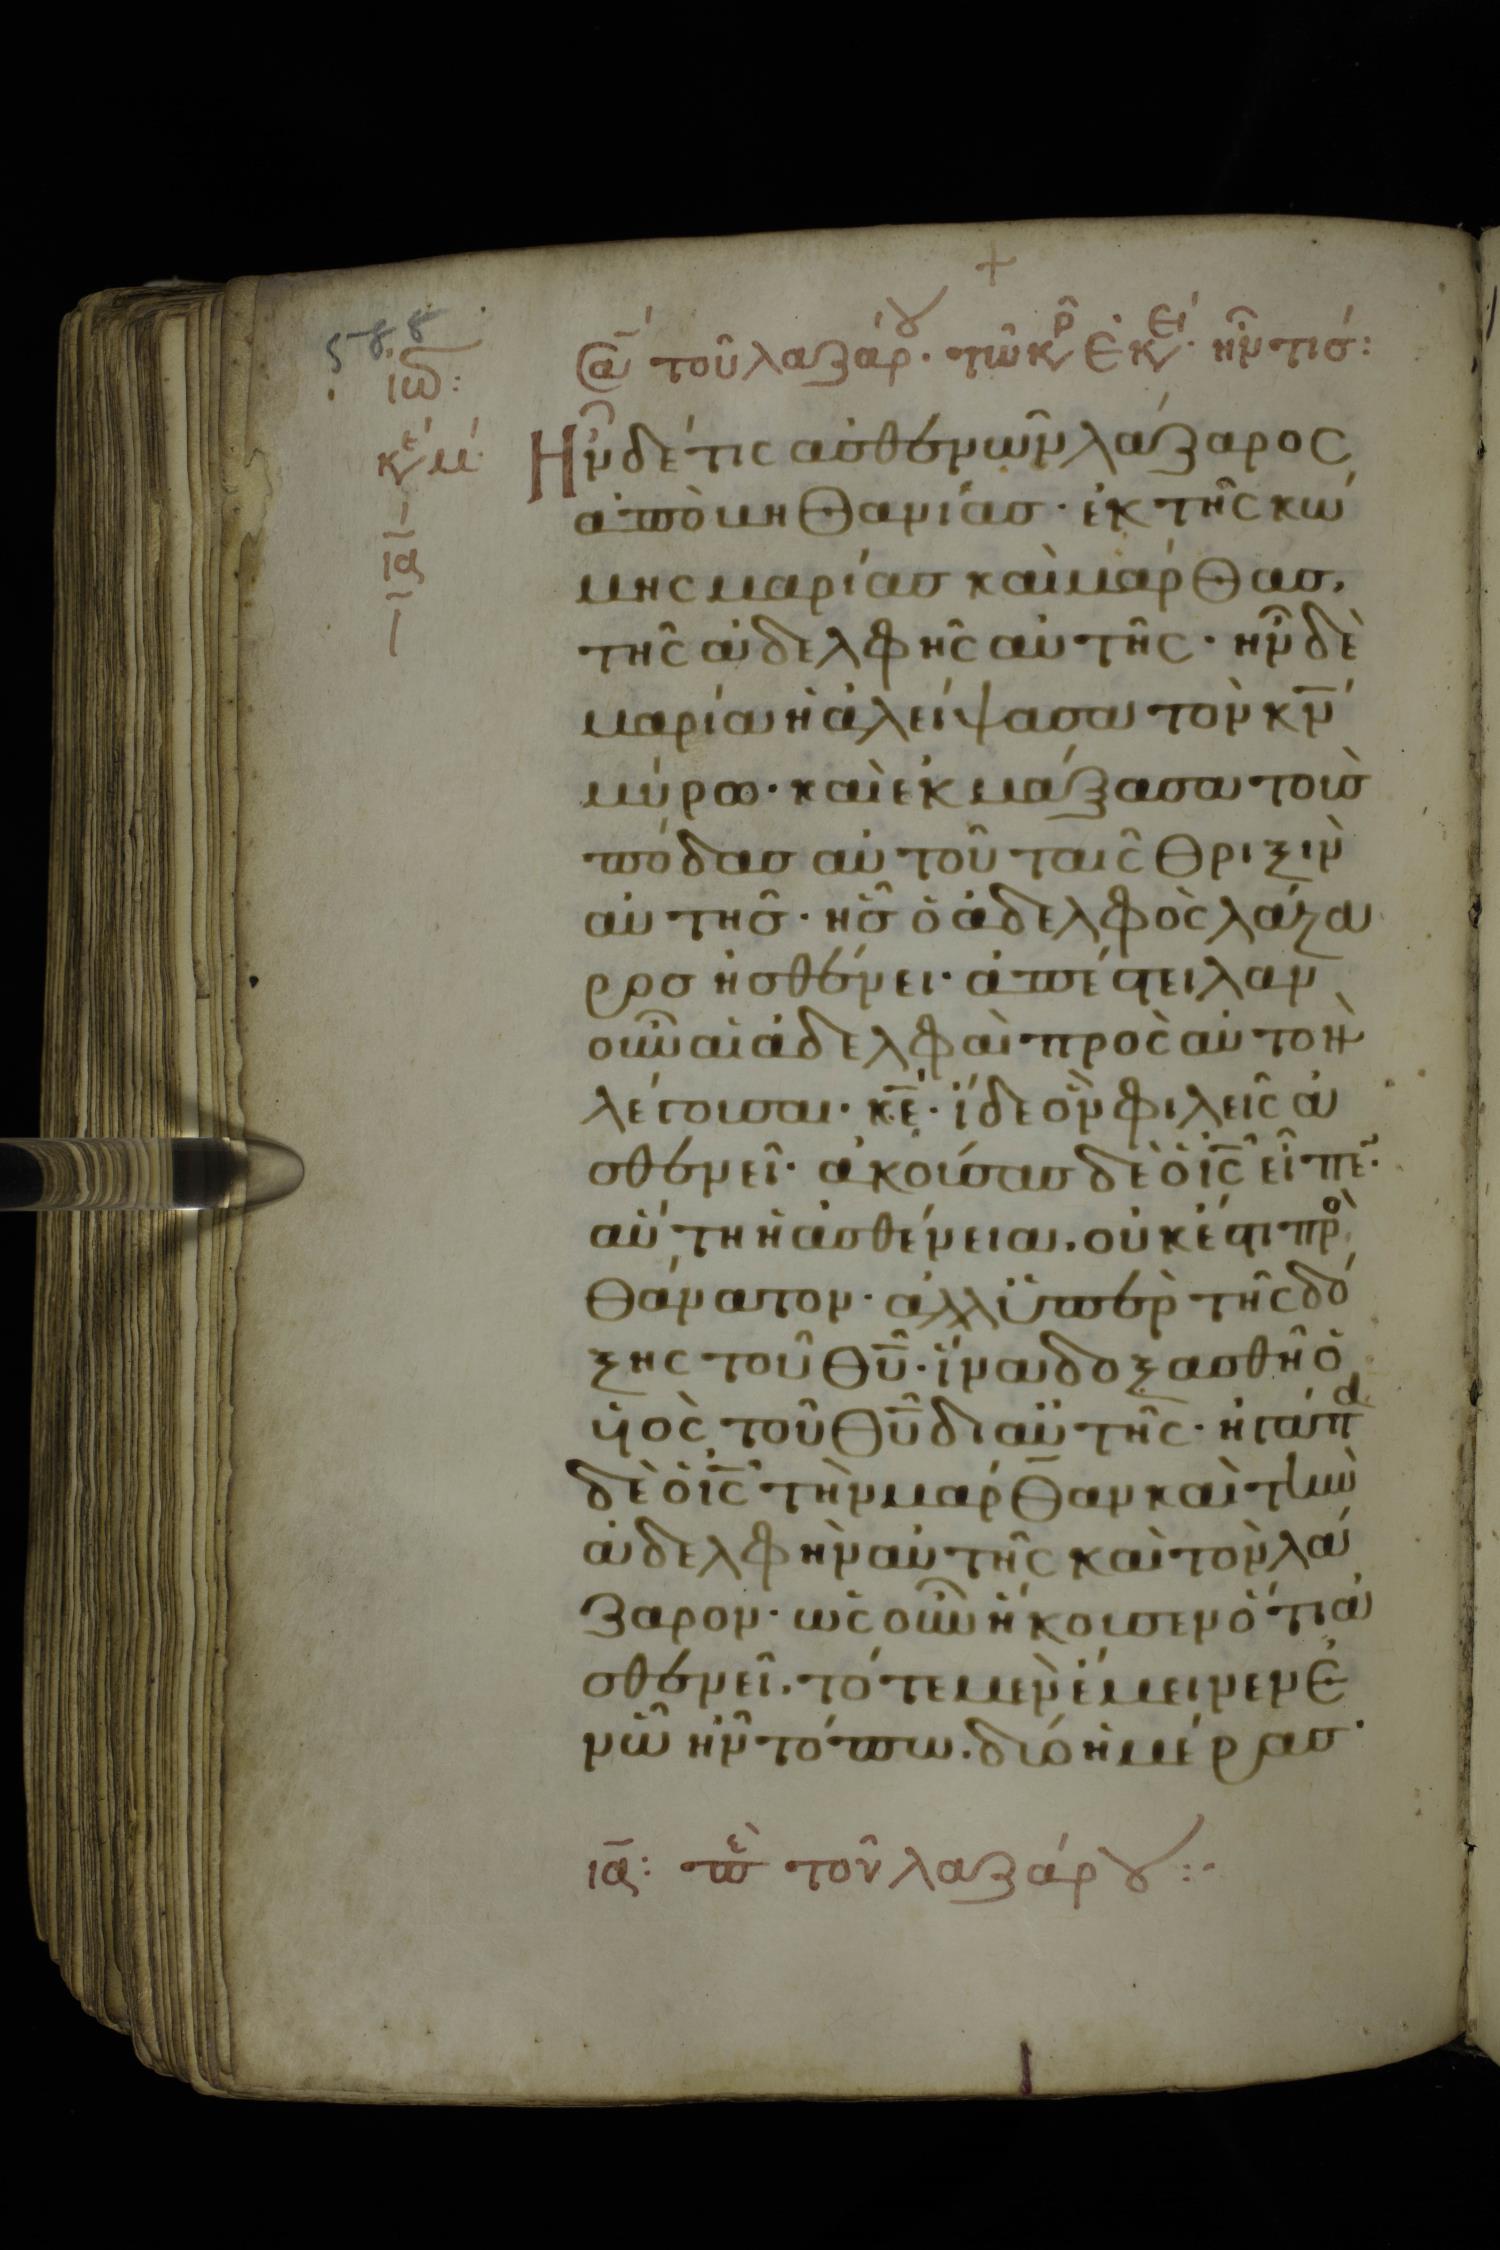 +
Σα του λαζάρου· τῶ κρ ἐκείν ἦν τισ:
ιω:
κε μ·
ια
Ἦν δέ τις ἀσθενῶν λάζαρος
ἀπὸ βηθανίας· ἐκ τῆς κώ
μης μαρίας καὶ μάρθας,
τῆς ἀδελφῆς αὐτῆς· ἦν δὲ
μαρία ἡ ἀλείψασα τὸν κν
μύρω· καὶ ἐκμάξασα τοὺς
πόδας αὐτοῦ ταῖς θριξὶν
αὐτῆς· ἧς ὁ ἀδελφὸς λάζα
ρος ἠσθένει· ἀπέστειλαν
οὖν αἱ ἀδελφαὶ πρὸς αὐτὸν
λέγουσαι· κε· ἴδε ὃν φιλεῖς ἀ
σθενεῖ· ἀκούσας δὲ ὁ ις εἶπε·
αὕτη ἡ ἀσθένεια, οὐκ ἔστι πρὸ
θάνατον· ἀλλ ὑπὲρ τῆς δό
ξης τοῦ θυ· ἵνα δοξασθῆ ὁ
υἱὸς τοῦ θυ δι αὐτῆς· ἠγάπα
δὲ ὁ ις τὴν μάρθαν καὶ τὴν
ἀδελφὴν αὐτῆς καὶ τὸν λά
ζαρον· ὡς οὖν ἤκουσεν ὅτι ἀ
σθενεῖ, τότε μὲν ἔμεινεν ἐ
ν ὧ ἦν τόπω, δύο ἡμέρας·
ια: πε τοῦ λαζάρου:·